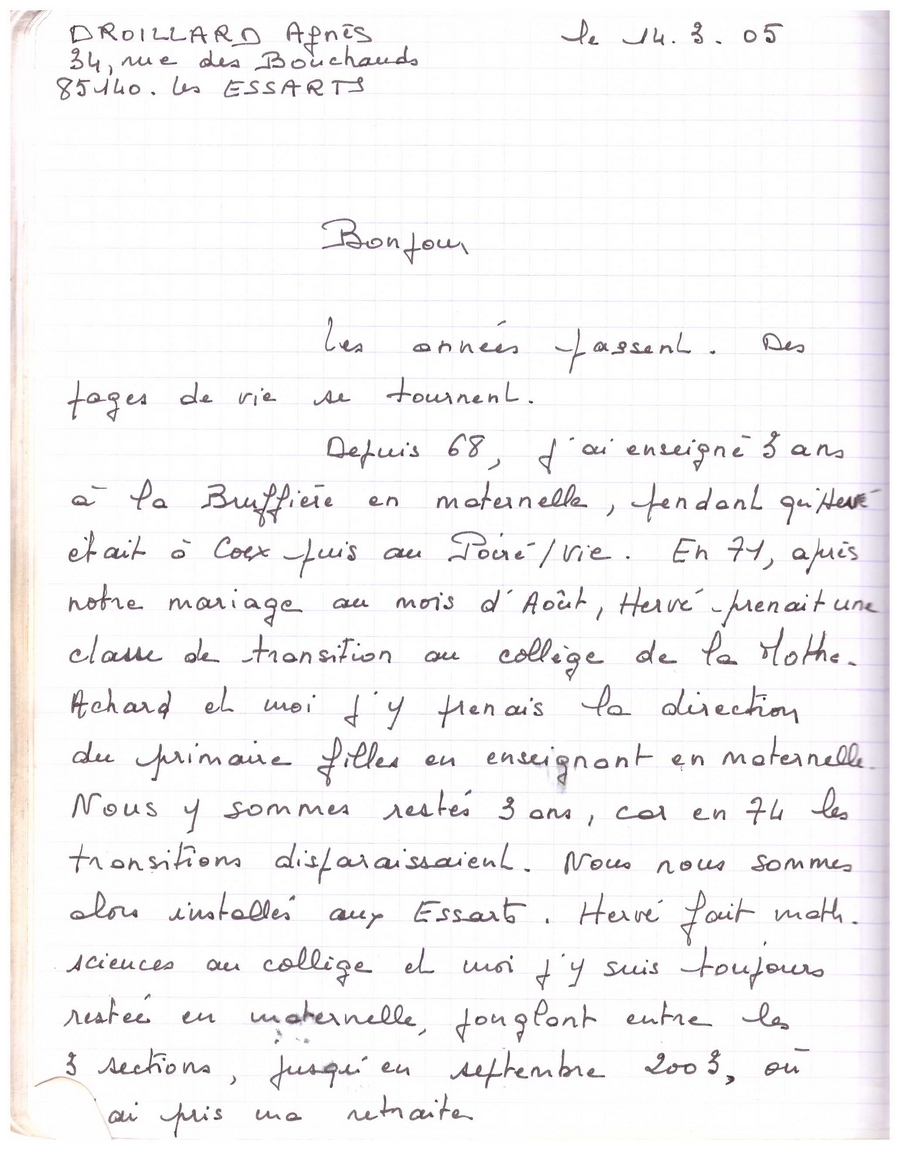 DROILLARD Agnès
le 14.3.05
34, rue des Bouchauds
85140. Les ESSARTS
Bonjour
Les années passent. Des
pages de vie se tournent.
Depuis 68, j'ai enseigné 3 ans
à la Bruffière en maternelle, pendant qu'Hervé
était à Coex puis au Poiré/vie. En 71, après
notre mariage au mois d'Août, Hervé prenait une
classe de transition au collège de la Mothe.
Achard et moi j'y prenais la direction
du primaire filles en enseignant en maternelle.
Nous y sommes restés 3 ans, car en 74 les
transitions disparaissaient. Nous nous sommes
alors installés aux Essarts. Hervé fait math.
sciences au collège et moi j'y suis toujours
restée en maternelle, jonglant entre les
3 sections, jusqu'en septembre 2003, où
ai pris ma retraite